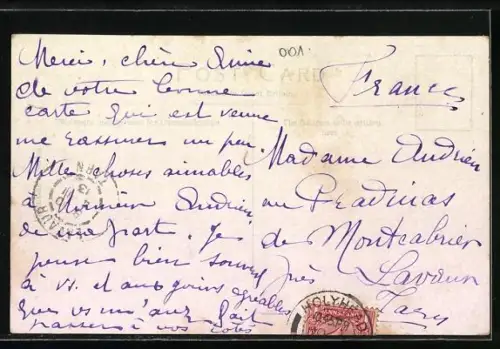 001.
POST CARD
Merci, chère Amie
de votre bonne
carte qui est venue
me rassurer un peu
Mille choses aimables
à Monsieur Andrieu
de ma part. Je
pense bien souvent
à vs. et aux jours agréables
que vs m'avez fait
passer à vos côtés
France
Madame Andrieu
au Pradinas
de Montcabrier
près Lavaur
Tarn
HOLYHEAD
LAVAUR
TARN